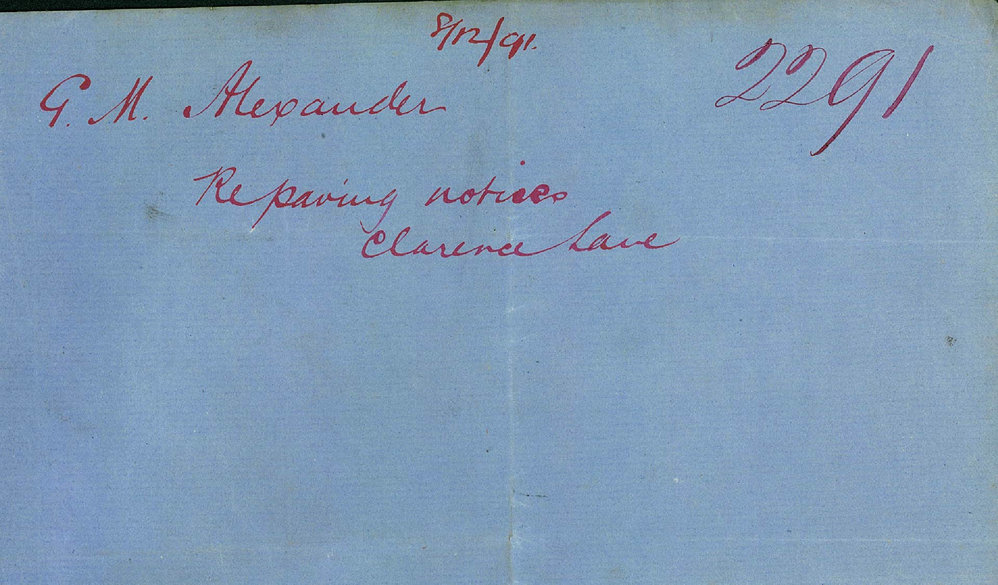 8/12/91.
2291
G. M. Alexander
Re paving notices
Clarence Lane